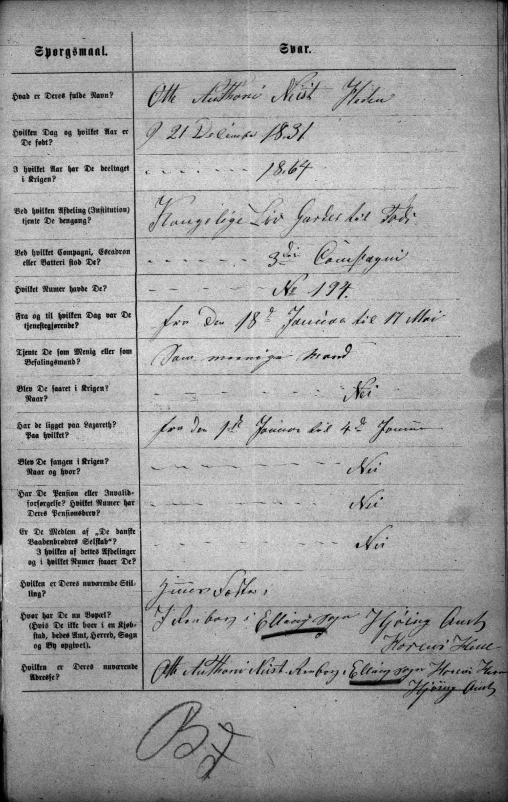 Spørgsmaal. Svar.
Hvad er Deres fulde Navn? Otto Anthoni Neist
Hvilken Dag og hvilket Aar er
De født? 21 December 1831
I hvilket Aar har De deeltaget
i Krigen? 1864
Ved hvilken Afdeling (Institution)
tjente De dengang? Kongelige Liv Garder til Fods
Ved hvilket Compagni, Escadron
eller Batteri stod De? 3die Compagni
Hvilket Numer havde De? No 194.
Fra og til hvilken Dag var De
tjenestegjørende? fra den 18de Januar til 17 Mai
Tjente De som Menig eller som
Befalingsmand? Som mand
Blev De saaret i Krigen?
Naar? Nei
Har de ligget paa Lazareth?
Paa hvilket? fra den 1de Januar til 4de
Blev De fangen i Krigen?
Naar og hvor? Nei
Har De Pension eller Invalid-
forsørgelse? Hvilket Numer har
Deres Pensionsbrev? Nei
Er De Medlem af „De danske
Vaabenbrødres Selskab“?
I hvilken af dettes Afdelinger
og i hvilket Numer staaer De? Nei
Hvilken er Deres nuværende Stil-
ling?
Hvor har De nu Bopæl?
(Hvis De ikke boer i en Kjøb-
stad, bedes Amt, Herred, Sogn
og By opgivet). i Elling Sogn Hjøring Amt
Hvilken er Deres nuværende
Adresse? Otto Anthoni Neist Elling Sogn
Hjøring Amt